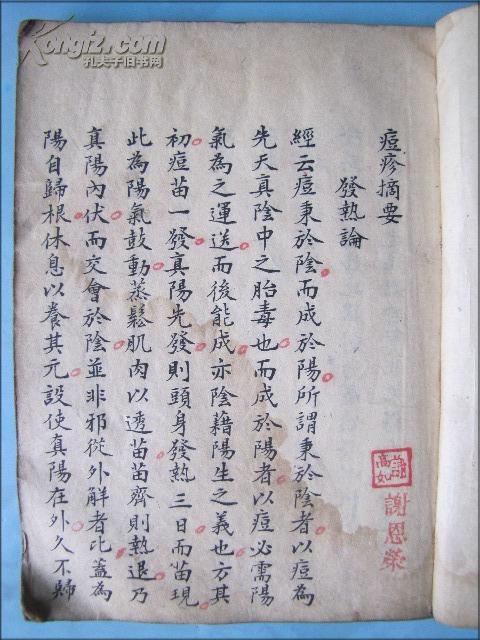 痘疹摘要
發熱論
經云痘秉於陰而成於陽所謂秉於陰者以痘為
先天真陰中之胎毒也而成於陽者以痘必需陽
氣為之運送而後能成亦陰藉陽生之義也方其
初痘苗一發真陽先發則頭身發熱三日而苗現
此為陽氣鼓動蒸鬆肌肉以透苗苗齊則熱退乃
真陽內伏而交會於陰並非邪從外解者比蓋為
陽自歸根休息以養其元設使真陽在外久不歸
謝恩榮
Kongfz.com
孔夫子旧书网